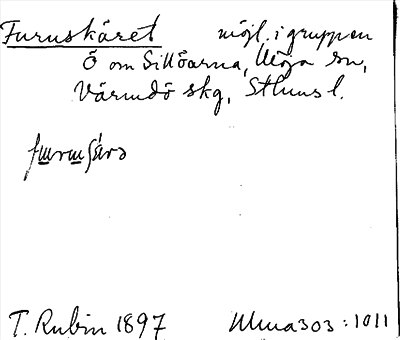 Furuskäret möjl. i gruppen
Ö om Sillöarna, Möja sn,
Värmdö skg, Sthms l.
furusǵärə
T. Rubin 1897 Ulma 303:1011